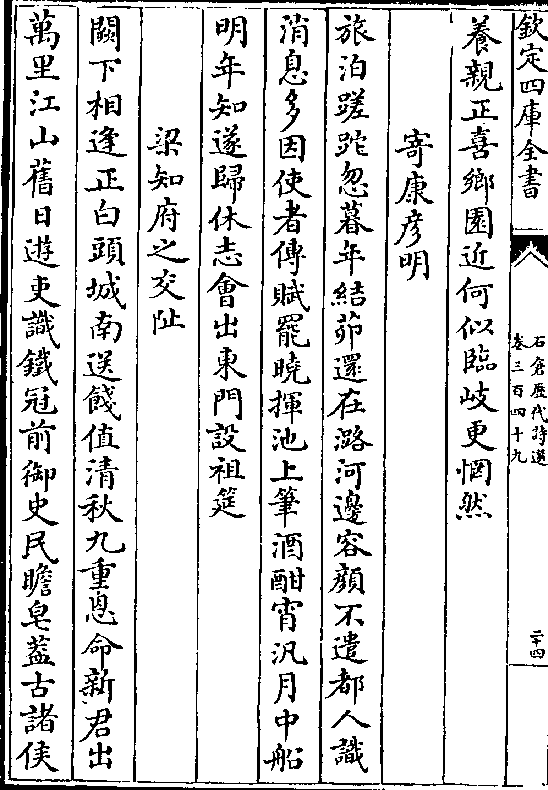 欽定四庫全書
石倉歷代詩選
卷三百四十九
二十四
養親正喜鄉園近何似臨岐更惘然
寄康彦明
旅泊蹉跎忽暮年結茆還在潞河邊容顔不遣都人識
消息多因使者傳賦罷曉揮池上筆酒酣宵汎月中船
明年知遂歸休志會出東門設祖筵
梁知府之交阯
闕下相逢正白頭城南送餞值清秋九重恩命新君出
萬里江山舊日遊吏識鐵冠前御史民瞻皂葢古諸侯